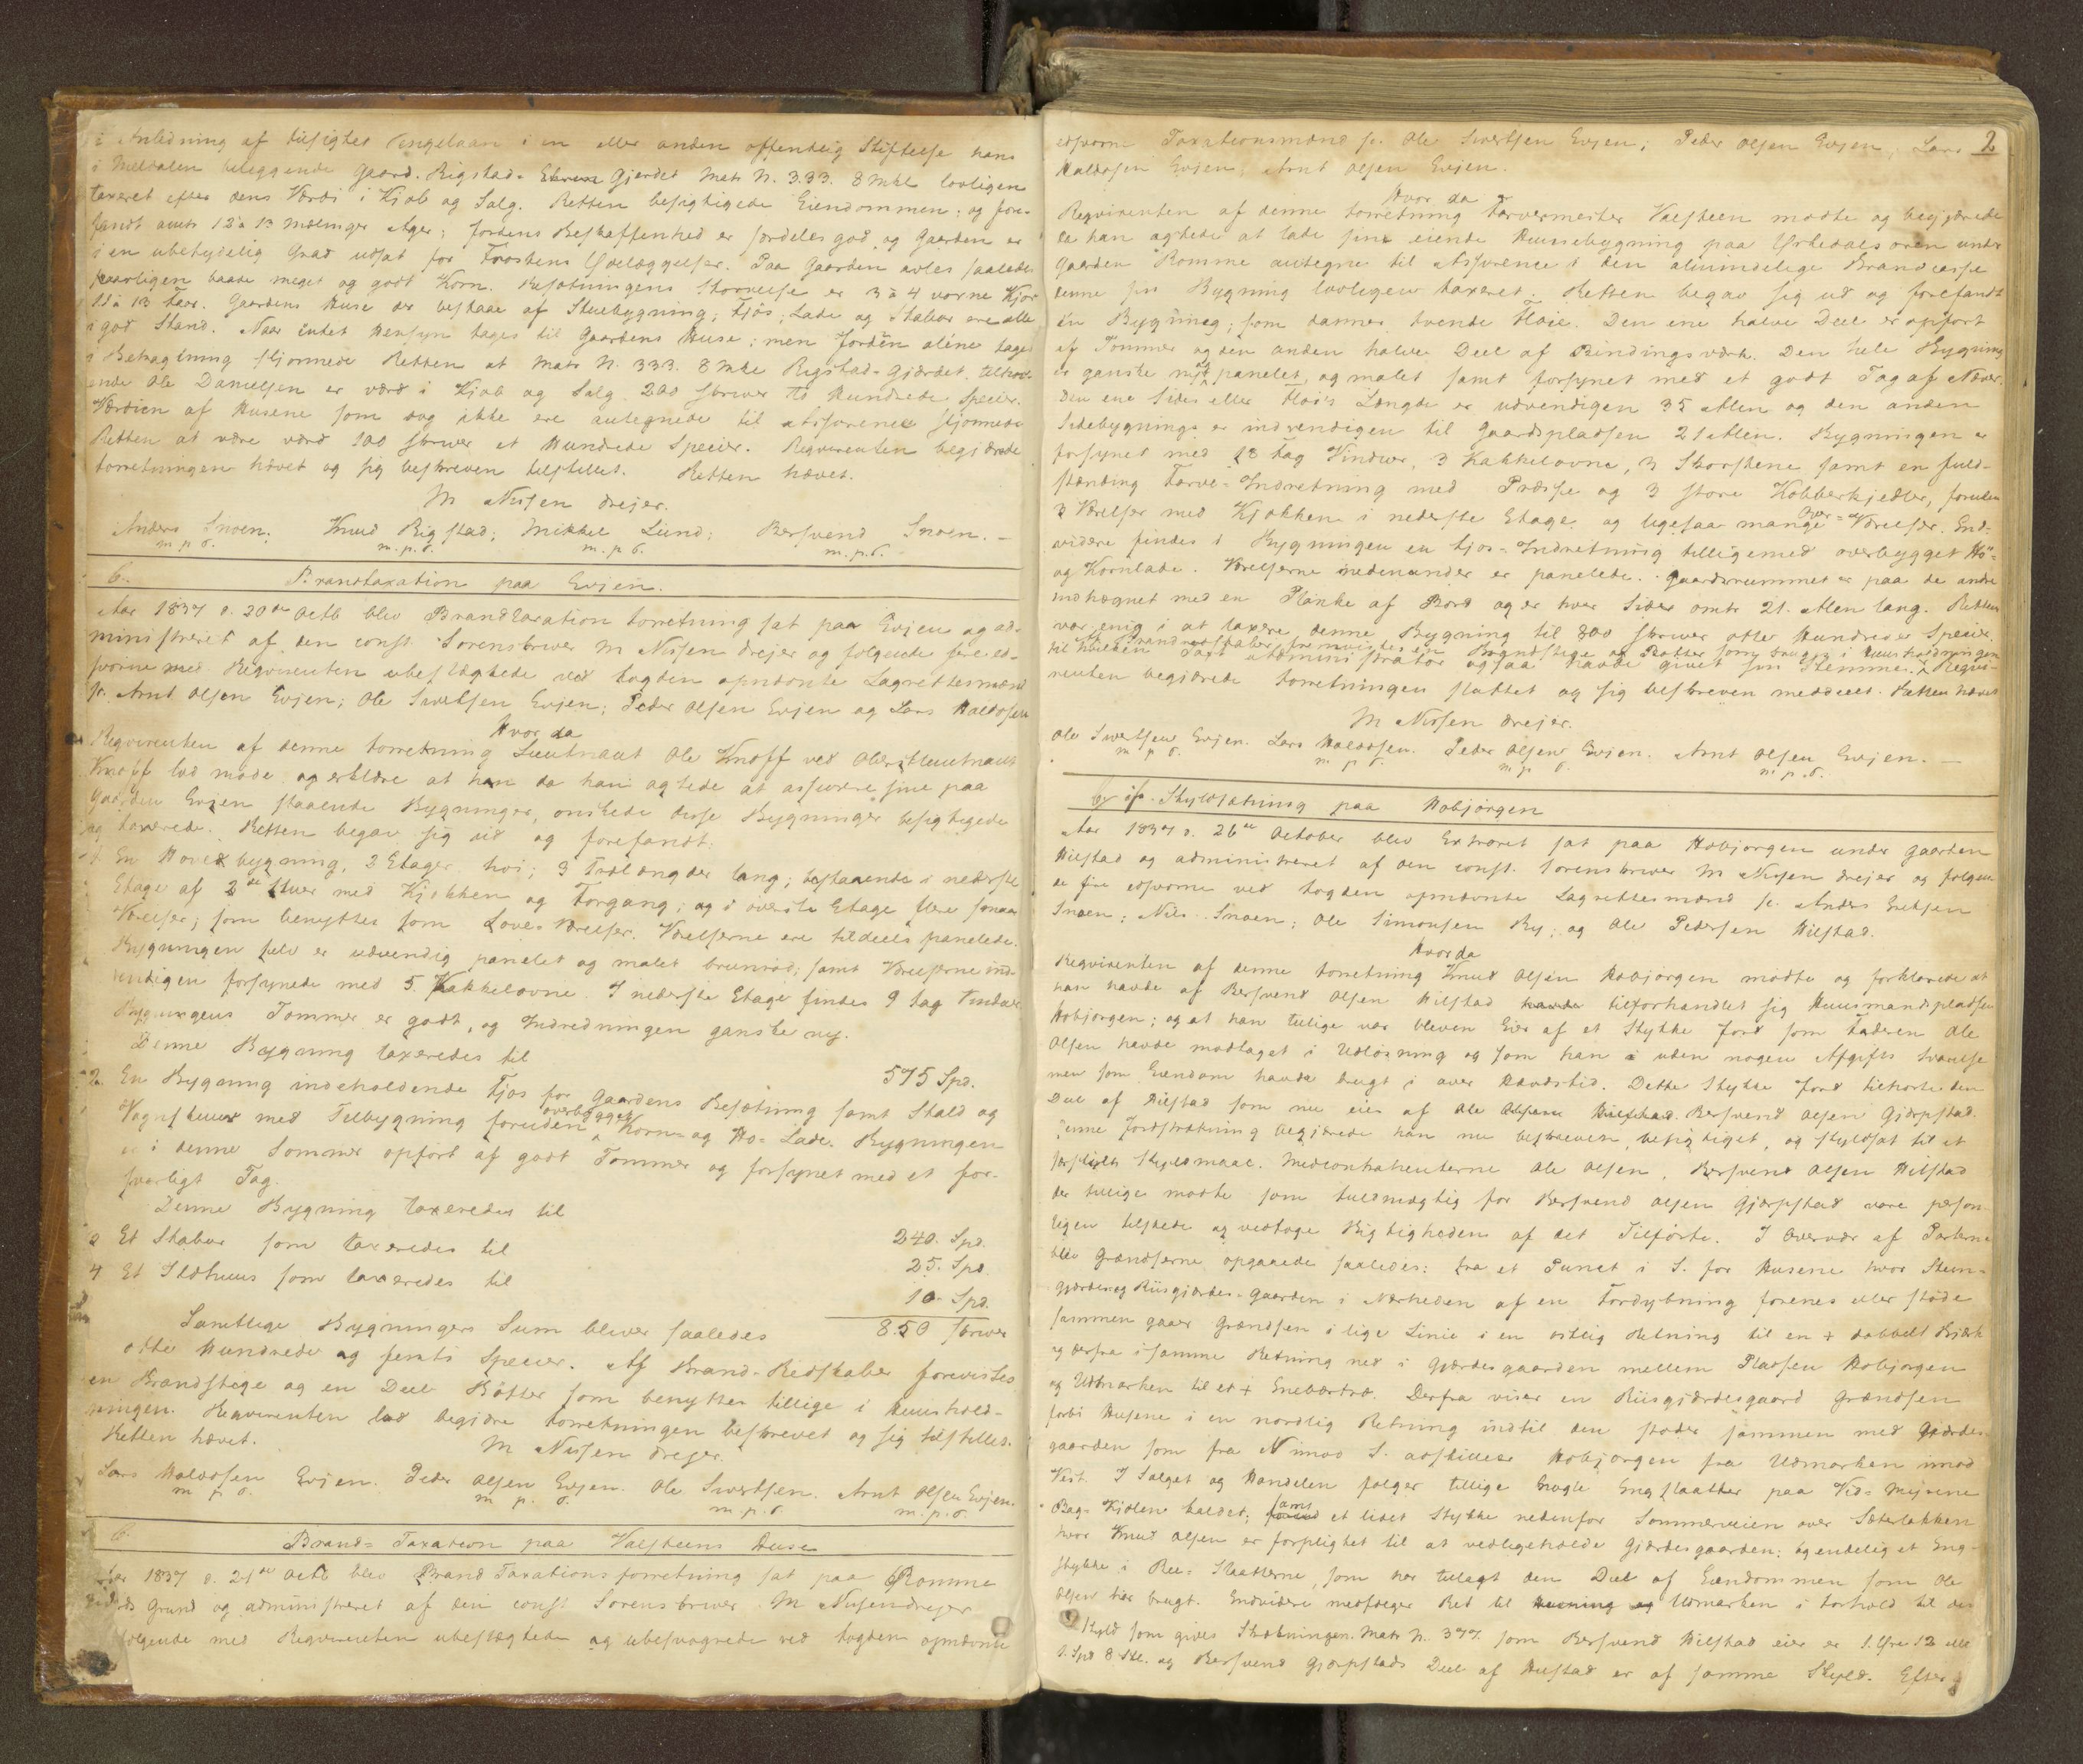 i Anledning af tilsigtet Pengelaan i en eller anden offentlig Stiftelse hans
i Meldalen beleggende Gaard Rigstad- Gjerdet Matr N. 333. 8 Mkl lovligen
taxeret efter dens Værdi i Kjøb og Salg. Retten besigtigede Eiendommen; og fore-
fandt 12 à 13 Mælinger Ager; Jordens Beskaffenhed er særdeles god og Gaarden er
i en ubetydelig Grad udsat for Frostens Ødelæggelser. Paa Gaarden avles saaledes
aarligen baade meget og godt Korn. Besætningens Størrelse er 3 à 4 vorne Kjør
12 à 13 Faar. Gaardens Huse der bestaae af Stuebygning; Fjøs; Lade og Stabur ere alle
i god Stand. Naar intet Hensyn tages til Gaardens Huse; men Jorden alene tages
i Betragtning skjønnede Retten at Matr N. 333. 8 Mkl Rigstad-Gjærdet tilhør-
ende Ole Danielsen er værd i Kjøb og Salg 200 skriver To Hundrede Specier.
Værdien af Husene som dog ikke ere antegnede til Assurence skjønnede
Retten at være værd 100 skriver et Hundrede Specier. Reqvirenten begjærede
Forretningen hævet og sig beskreven tilstillet. Retten hævet.
M Nissen Drejer.
Anders Snoen. Knud Rigstad; Mikkel Lund; Bersvend Snoen. -
m p s. m. p. s. m. p s. m. p. s.
6. Brandtaxation paa Evjen.
Aar 1837 d. 20de Octb blev Brandtaxation Forretning sat paa Evjen og ad-
ministreret af den const. Sorenskriver M Nissen Drejer og følgende fire ed-
svorne med Reqvirenten ubeslægtede ved Fogden opnævnte Lagrettesmænd
s. Arnt Olsen Evjen; Ole Sivertsen Evjen; Peder Olsen Evjen og Lars Haldosen
Hvor da
Reqvirenten af denne Forretning Lieutnant Ole Knoff ved Oberstlieutnant
Knoff lod møde og erklære at han da han agtede at assurere sine paa
Gaarden Evjen staaende Bygninger, ønskede disse Bygninger besigtigede
og taxerede. Retten begav sig ud og forefandt:
1. En Hovedbygning, 2 Etager høi; 3 Trælængder lang; bestaaende i nederste
Etage af 2de Stuer med Kjøkken og Forgang; og i øverste Etage flere smaa
Værelser; som benyttes som Love-Værelser. Værelserne ere tildeels panelede.
Bygningen selv er udvendig panelet og malet brunrød; samt Værelserne ind-
vendigen forsynede med 5 Kakkelovne. I nederste Etage findes 9 Fag Vinduer
Bygningens Tømmer er godt, og Indredningen ganske ny.
Denne Bygning taxeredes til 575 Spd.
2. En Bygning indeholdende Fjøs for Gaardens Besætning samt Stald og
Vognskuur med Tilbygning foruden overbygget Korn- og Hø-Lade. Bygningen
er i denne Sommer opført af godt Tømmer og forsynet med et for-
svarligt Tag.
Denne Bygning taxeredes til 240. Spd.
3 Et Stabur som taxeredes til 25. Spd
4 Et Ildhuus som taxeredes til 10 Spd.
Samtlige Bygningers Sum bliver saaledes 850 skriver
otte Hundrede og femti Specier. Af Brand-Redskaber forevistes
en Brandstige og en Deel Bøtter som benyttes tillige i Huushold-
ningen. Reqvirenten lod begjære Forretningen beskrevet og sig tilstillet.
Retten hævet. M Nissen Drejer.
Lars Haldosen Evjen. Peder Olsen Evjen. Ole Sivertsen. Arnt Olsen Evjen.
m p s. m p. s. m. p. s. m. p. s.
6. Brand-Taxation paa Valsteens Huse
Aar 1837 d. 21de Octb blev Brand Taxationsforretning sat paa Romme
Grund og administreret af den const Sorenskriver M Nissen Drejer
følgende med Reqvirenten ubeslægtede og ubesvogrede ved Fogden opnævnte
2
edsvorne Taxationsmænd s. Ole Sivertsen Evjen; Peder Olsen Evjen, Lars
Haldosen Evjen; Arnt Olsen Evjen.
Hvor da
Reqvirenten af denne Forretning Farvermester Valsteen mødte og begjærede
da han agtede at lade sine eiende Huusebygning paa Ørkedalsøren under
Gaarden Romme antegne til Assurence i den almindelige Brandcasse
denne sin Bygning lovligen taxeret. Retten begav sig ud og forefandt
En Bygning; som danner tvende Fløie. Den ene halve Deel er opført
af Tømmer og den anden halve Deel af Bindingsværk. Den hele Bygning
er ganske nyt panelet, og malet samt forsynet med et godt Tag af Næver.
Den ene Sides eller Fløi's Længde er udvendigen 35 Alen og den anden
Sidebygnings er indvendigen til Gaardspladsen 21 Alen. Bygningen er
forsynet med 18 Fag Vinduer, 3 Kakkelovne, 3 Skorstene samt en fuld-
stænding Farve-Indretning med Præsse og 3 store Kobberkjedler, foruden
3 Værelser med Kjøkken i nederste Etage og ligesaa mange Over-Værelser. End-
videre findes i Bygningen en Fjøs-Indretning tilligemed overbygget Hø-
og Kornlade. Værelserne nedenunder er panelede. Gaardsrummet er paa de andre
indhægnet med en Planke af Bord og er hver Sides omtr 21. Alen lang. Retten
var enig i at taxere denne Bygning til 800 skriver otte Hundrede Specier.
Af Brandredskaber fremvistes en Brandstige og Bøtter som bruges i Huusholdningen
til hvilken Taxt Administrator ogsaa havde givet sin Stemme. Reqvi-
renten begjærede Forretningen sluttet og sig beskreven meddeelt. Retten hævet
M Nissen Drejer.
Ole Sivertsen Evjen. Lars Haldosen. Peder Olsen Evjen. Arnt Olsen Evjen. -
m p s. m p s. m p s. m p. s.
Skyldsætning paa Hobjørgen
Aar 1837 d. 26de October blev Extraret sat paa Hobjørgen under Gaarden
Hilstad og administreret af den const. Sorenskriver M Nissen Drejer og følgen-
de fire edsvorne ved Fogden opnævnte Lagrettesmænd s. Anders Eriksen
Snoen; Nils Snoen; Ole Simonsen By; og Ole Pedersen Hilstad.
Hvor da
Reqvirenten af denne Forretning Knud Olsen Hobjørgen mødte og forklarede at
han havde af Bersvend Olsen Hilstad havde tilforhandlet sig Huusmandspladsen
Hobjørgen; og at han tillige var bleven Eier af et Stykke Jord som Faderen Ole
Olsen havde modtaget i Udløsning og som han i uden nogen Afgifts Svarelse
men som Eiendom havde brugt i over Hævdstid. Dette Stykke Jord tilhørte den
Deel af Hilstad som nu eies af Ole Olsen Hilstad. Bersvend Olsen Gjærpstad.
Denne Jordstrækning begjærede han nu beskreven, besigtiget, og skyldsat til et
særskilt Skyldmaal. Medcontrahenterne Ole Olsen, Bersvend Olsen Hilstad
der tillige mødte som Fuldmægtig for Bersvend Olsen Gjærpstad vare person-
ligen tilstede og vedtoge Rigtigheden af det Tilførte. I Overvær af Parterne
blev Grændserne opgaaede saaledes: fra et Punct i S. for Husene hvor Steen-
gjærdes og Riisgjærdes-Gaarden i Nærheden af en Fordybning forenes eller støde
sammen gaaer Grændsen i lige Linie i en østlig Retning til en + dobbelt Birk
og derfra i samme Retning ned i Gjærdesgaarden mellem Pladsen Hobjørgen
og Udmarken til et + Enebærtræ. Derfra viser en Riisgjærdesgaard Grændsen
forbi Husene i en nordlig Retning indtil den støder sammen med Gjærdes-
gaarden som fra N imod S. adskiller Hobjørgen fra Udmarken imod
Vest. I Salget og Handelen følger tillige nogle Engslaatter paa Vids Myrene
Bag-Kjølen kaldet; samt et lidet Stykke nedenfor Sommerveien over Sæterbakken
hvor Knud Olsen er forpligtet til at vedligeholde Gjærdesgaarden; og endelig et Eng-
stykke i Ree-Slaatterne, som har tillagt den Deel af Eiendommen som Ole
Olsen har brugt. Endvidere medfølger Ret til Havning og Udmarken i Forhold til den
Skyld som gives Strækningen. Matr N. 377. som Bersvend Hilstad eier er 1. Øre 12 eller
1. Spd 8 Skl. og Bersvend Gjærpstads Deel af Hilstad er af samme Skyld. Efter